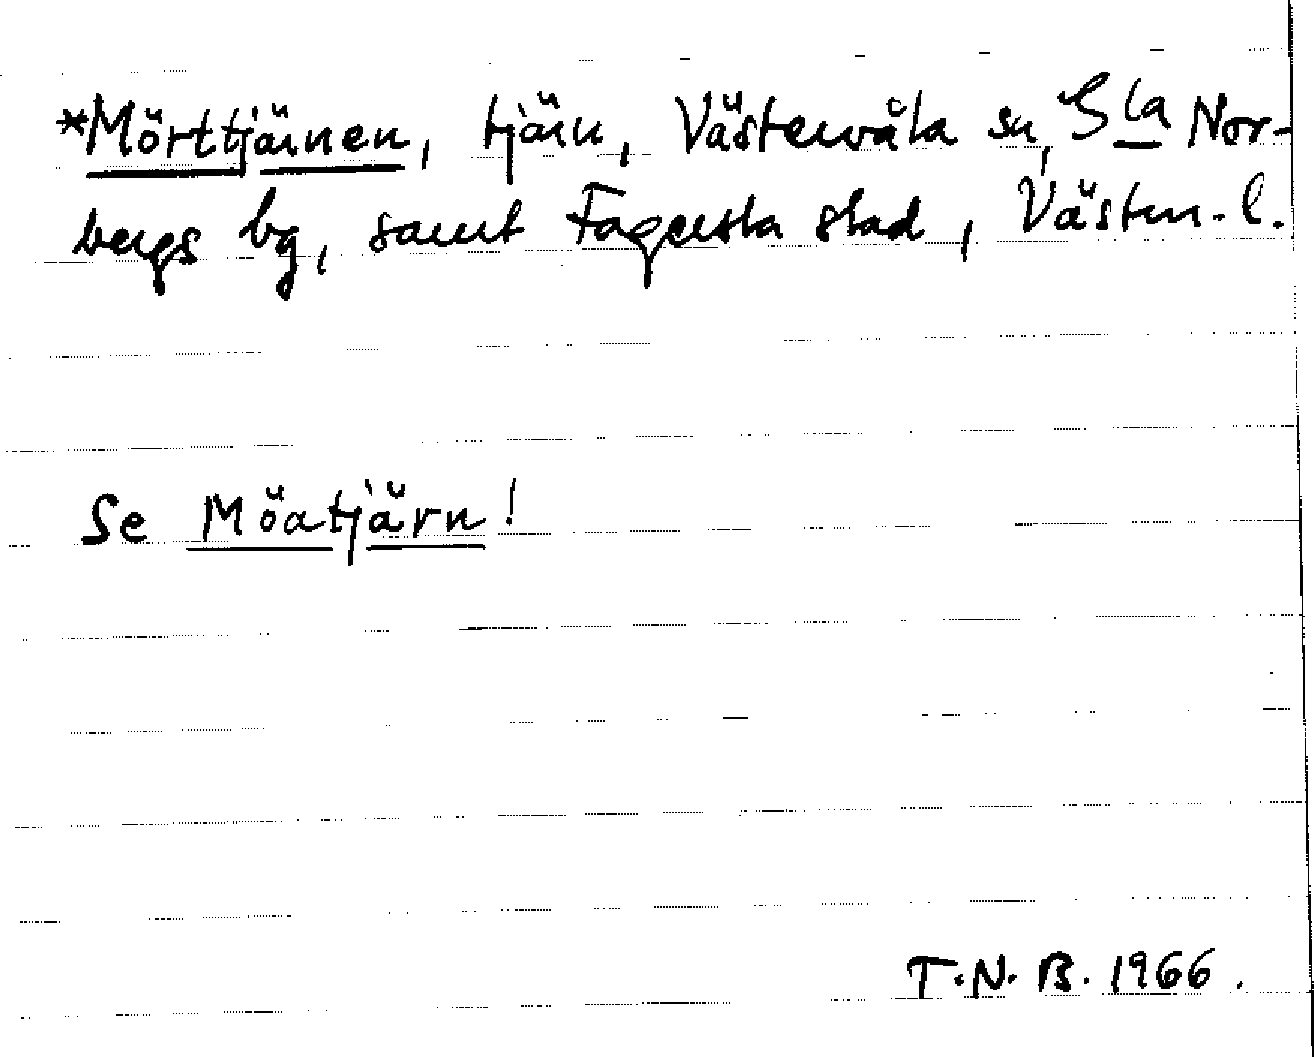 *Mörttjärnen, tjärn, Västervåla sn, Sla Nor-
bergs bg, samt Fagersta stad, Västm. l.
Se Möatjärn!
T.N.B. 1966.